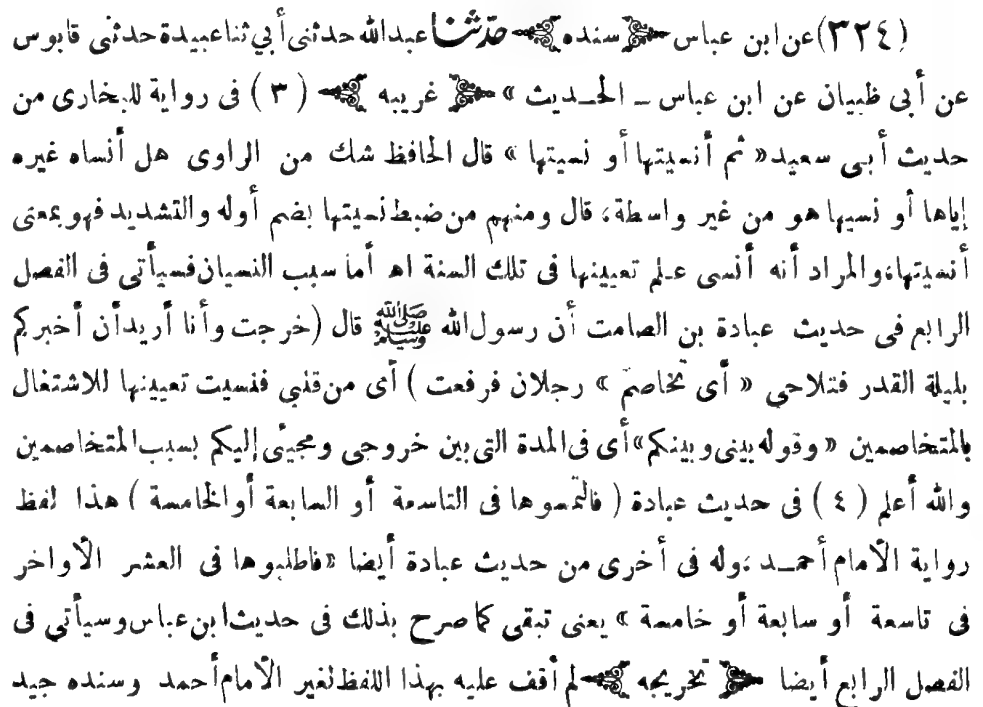 (٣٢٤) عن ابن عباس ﴿سنده﴾ حدثنا عبد الله حدثنى أبي ثنا عبيدة حدثنى قابوس
عن أبى ظبيان عن ابن عباس ــ الحــديث » ﴿غريبه﴾ ( ٣ ) فى رواية للبخارى من
حديث أبى سعيد « ثم أنسيتها أو نسيتها » قال الحافظ شك من الراوى هل أنساه غيره
إياها أو نسيها هو من غير واسطة، قال ومنهم من ضبط نسيتها بضم أوله والتشديد فهو بمعنى
أنسيتها، والمراد أنه أنسى عـلم تعيينها فى تلك السنة اهـ أما سبب النسيان فسيأتى فى الفصل
الرابع فى حديث عبادة بن الصامت أن رسول الله ﷺ قال (خرجت وأنا أريد أن أخبركم
بليلة القدر فتلاحى « أى تخاصم » رجلان فرفعت ) أى من قلبي فنسيت تعيينها للاشتغال
بالمتخاصمين « وقوله بينى وبينكم» أى فى المدة التى بين خروجى ومجيئى إليكم بسبب المتخاصمين
والله أعلم ( ٤ ) فى حديث عبادة ( فالتمسوها فى التاسعة أو السابعة أو الخامسة ) هذا لفظ
رواية الأمام أحمــد ،وله فى أخرى من حديث عبادة أيضا «فاطلبوها فى العشر الأواخر
فى تاسعة أو سابعة أو خامسة » يعنى تبقى كما صرح بذلك فى حديث ابن عباس وسيأتي فى
الفصل الرابع أيضا ﴿تخريجه﴾ لم أقف عليه بهذا اللفظ لغير الأمام أحمد وسنده جيد